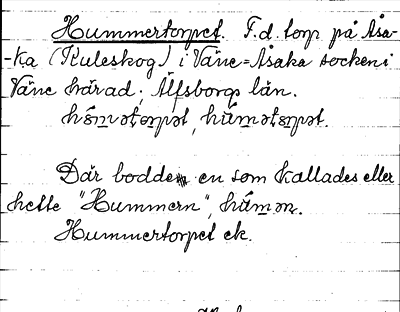 Hummertorpet. F.d. torp på Åsa-
-ka (Kuleskog) i Väne-Åsaka socken i
Väne härad, Älfsborgs län.
hŏmətɷrpət, hŭmətɷrpət.
Där bodde en som kallades eller
hette "Hummern", hŭmən.
Hummertorpet ek.